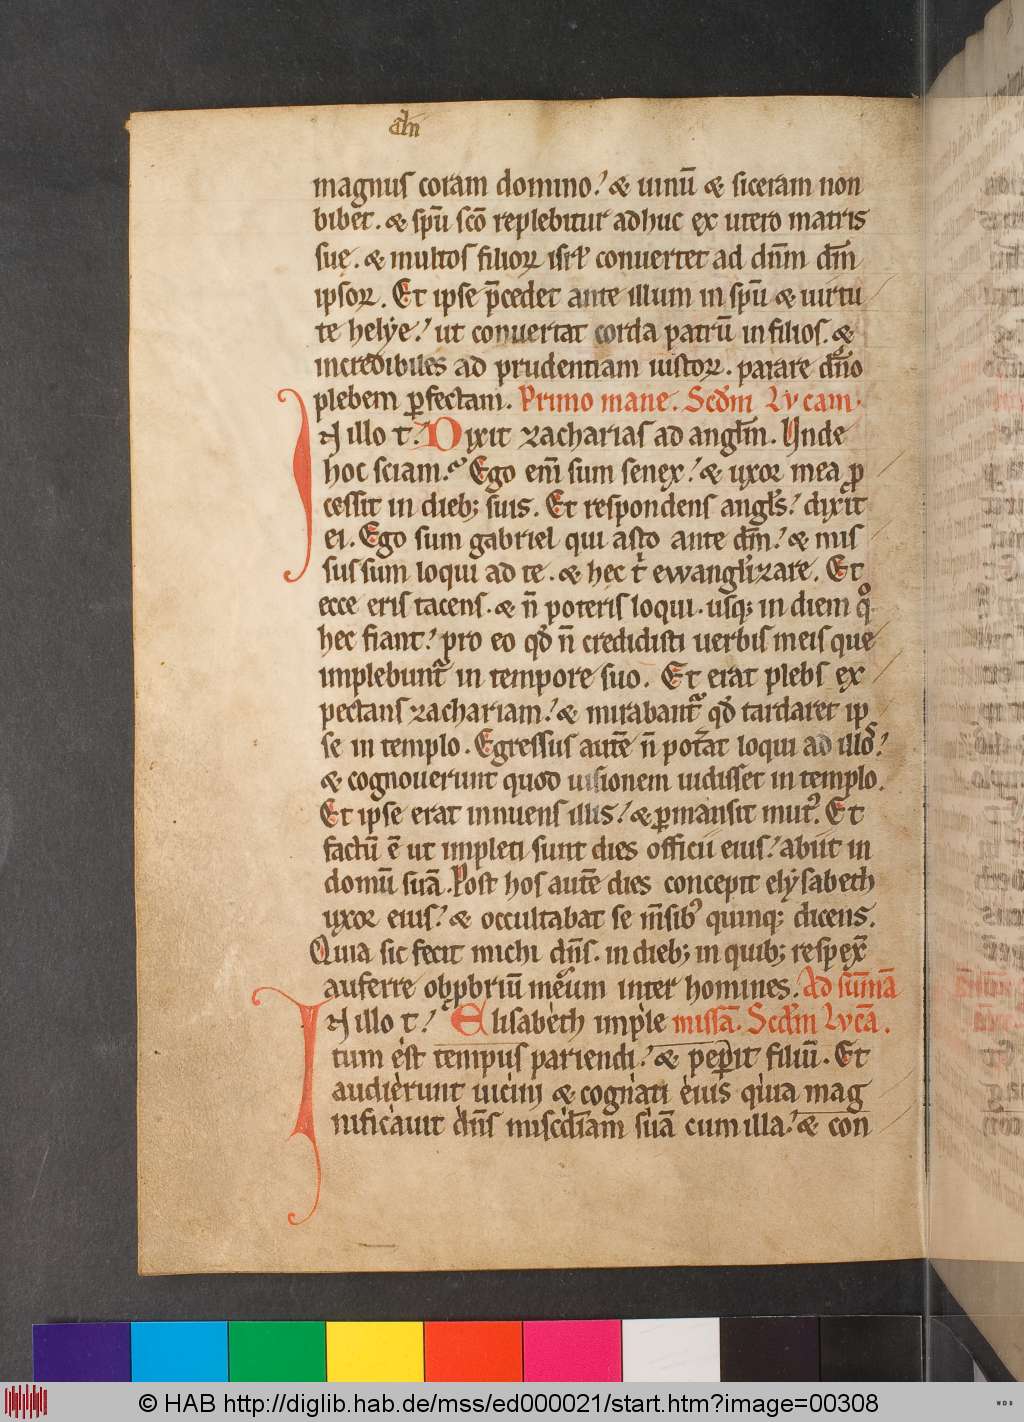 magnus coram domino. & uinū & siceram non
bibet. & spū scō replebitur adhuc ex utero matris
sue. & multos filioꝝ isrl̓ conuertet ad dn̄m dm̄
ipsoꝝ. Et ipse p̄cedet ante illum in spū & uirtu
te helẏe. ut conuertat corda patrū in filios. &
incredibiles ad prudentiam iustoꝝ. parare dn̄o
plebem ꝑfectam. Primo mane. Scd̄m Lucam.
In illo t. Dixit zacharias ad angl̄m. Unde
hoc sciam. Ego eni̅ sum senex. & uxor mea ꝓ
cessit in dieb; suis. Et respondens angl̄s. dixit
ei. Ego sum gabriel qui asto ante dm̄. & mis
sus sum loqui ad te. & hec t̓ ewangl̓izare. Et
ecce eris tacens. & n̄ poteris loqui. usq; in diem qͦ
hec fiant. pro eo qd̄ n̄ credidisti uerbis meis que
implebunt᷑ in tempore suo. Et erat plebs ex
pectans zachariam. & mirabant᷑ qd̄ tardaret ip
se in templo. Egressus autē n̄ pot̓at loqui ad illos.
& cognouerunt quod uisionem uidisset in templo.
Et ipse erat innuens illis. & ꝑmansit mutꝰ. Et
factū ē ut impleti sunt dies officii eius. abiit in
domū suā. Post hos autē dies concepit elẏsabeth
uxor eius. & occultabat se m̄sibꝰ quinq; dicens.
Quia sic fecit michi dn̄s. in dieb; in quib; respex̄
auferre obꝓbriū meum inter homines. Ad sum̄ā
In illo t. Elisabeth imple missā. Scd̄m Lucā.
tum est tempus pariendi. & peꝑit filiū. Et
audierunt uicini & cognati eius quia mag
nificauit dn̄s misc̄diam suā cum illa. & con
© HAB http://diglib.hab.de/mss/ed000021/start.htm?image=00308